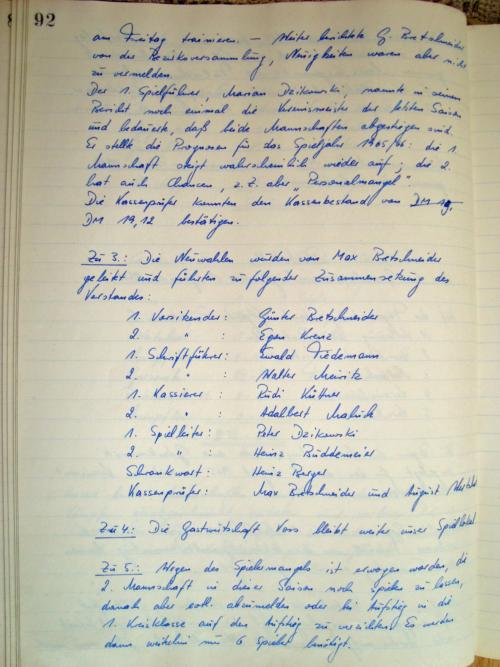 92
am Freitag trainieren. – Weiter berichtete G. Bretschneider
von der Bezirksversammlung, Neuigkeiten waren aber nicht
zu vermelden.
Der 1. Spielführer, Marian Dzikowski, nannte in seinem
Bericht noch einmal die Vereinsmeister der letzten Saison
und bedauerte, daß beide Mannschaften abgestiegen sind.
Er stellte die Prognosen für das Spieljahr : die 1.
Mannschaft steigt wahrscheinlich wieder auf; die 2.
hat auch Chancen, z. Z. aber „Personalmangel".
Die Kassenprüfer konnten den Kassenbestand von
DM 19,12 bestätigen.
Zu 3.: Die Neuwahlen wurden von Max Bretschneider
geleitet und führten zu folgender Zusammensetzung des
Vorstandes:
1. Vorsitzender: Günter Bretschneider
2. " : Egon Krenz
1. Schriftführer: Ewald Tiedemann
2. " : Walter
1. Kassierer: Rudi Küttner
2. " : Adalbert
1. Spielleiter: Peter Dzikowski
2. " : Heinz Büddemeier
Schrankwart: Heinz Berger
Kassenprüfer: Max Bretschneider und August
Zu 4.: Die Gastwirtschaft Voss bleibt weiter unser Spiellokal.
Zu 5.: Wegen des Spielermangels ist erwogen worden, die
2. Mannschaft in dieser Saison noch spielen zu lassen,
danach aber evtl. abzumelden oder bei Aufstieg in die
1. Kreisklasse auf den Aufstieg zu verzichten. Es werden
dann weiterhin nur 6 Spieler benötigt.